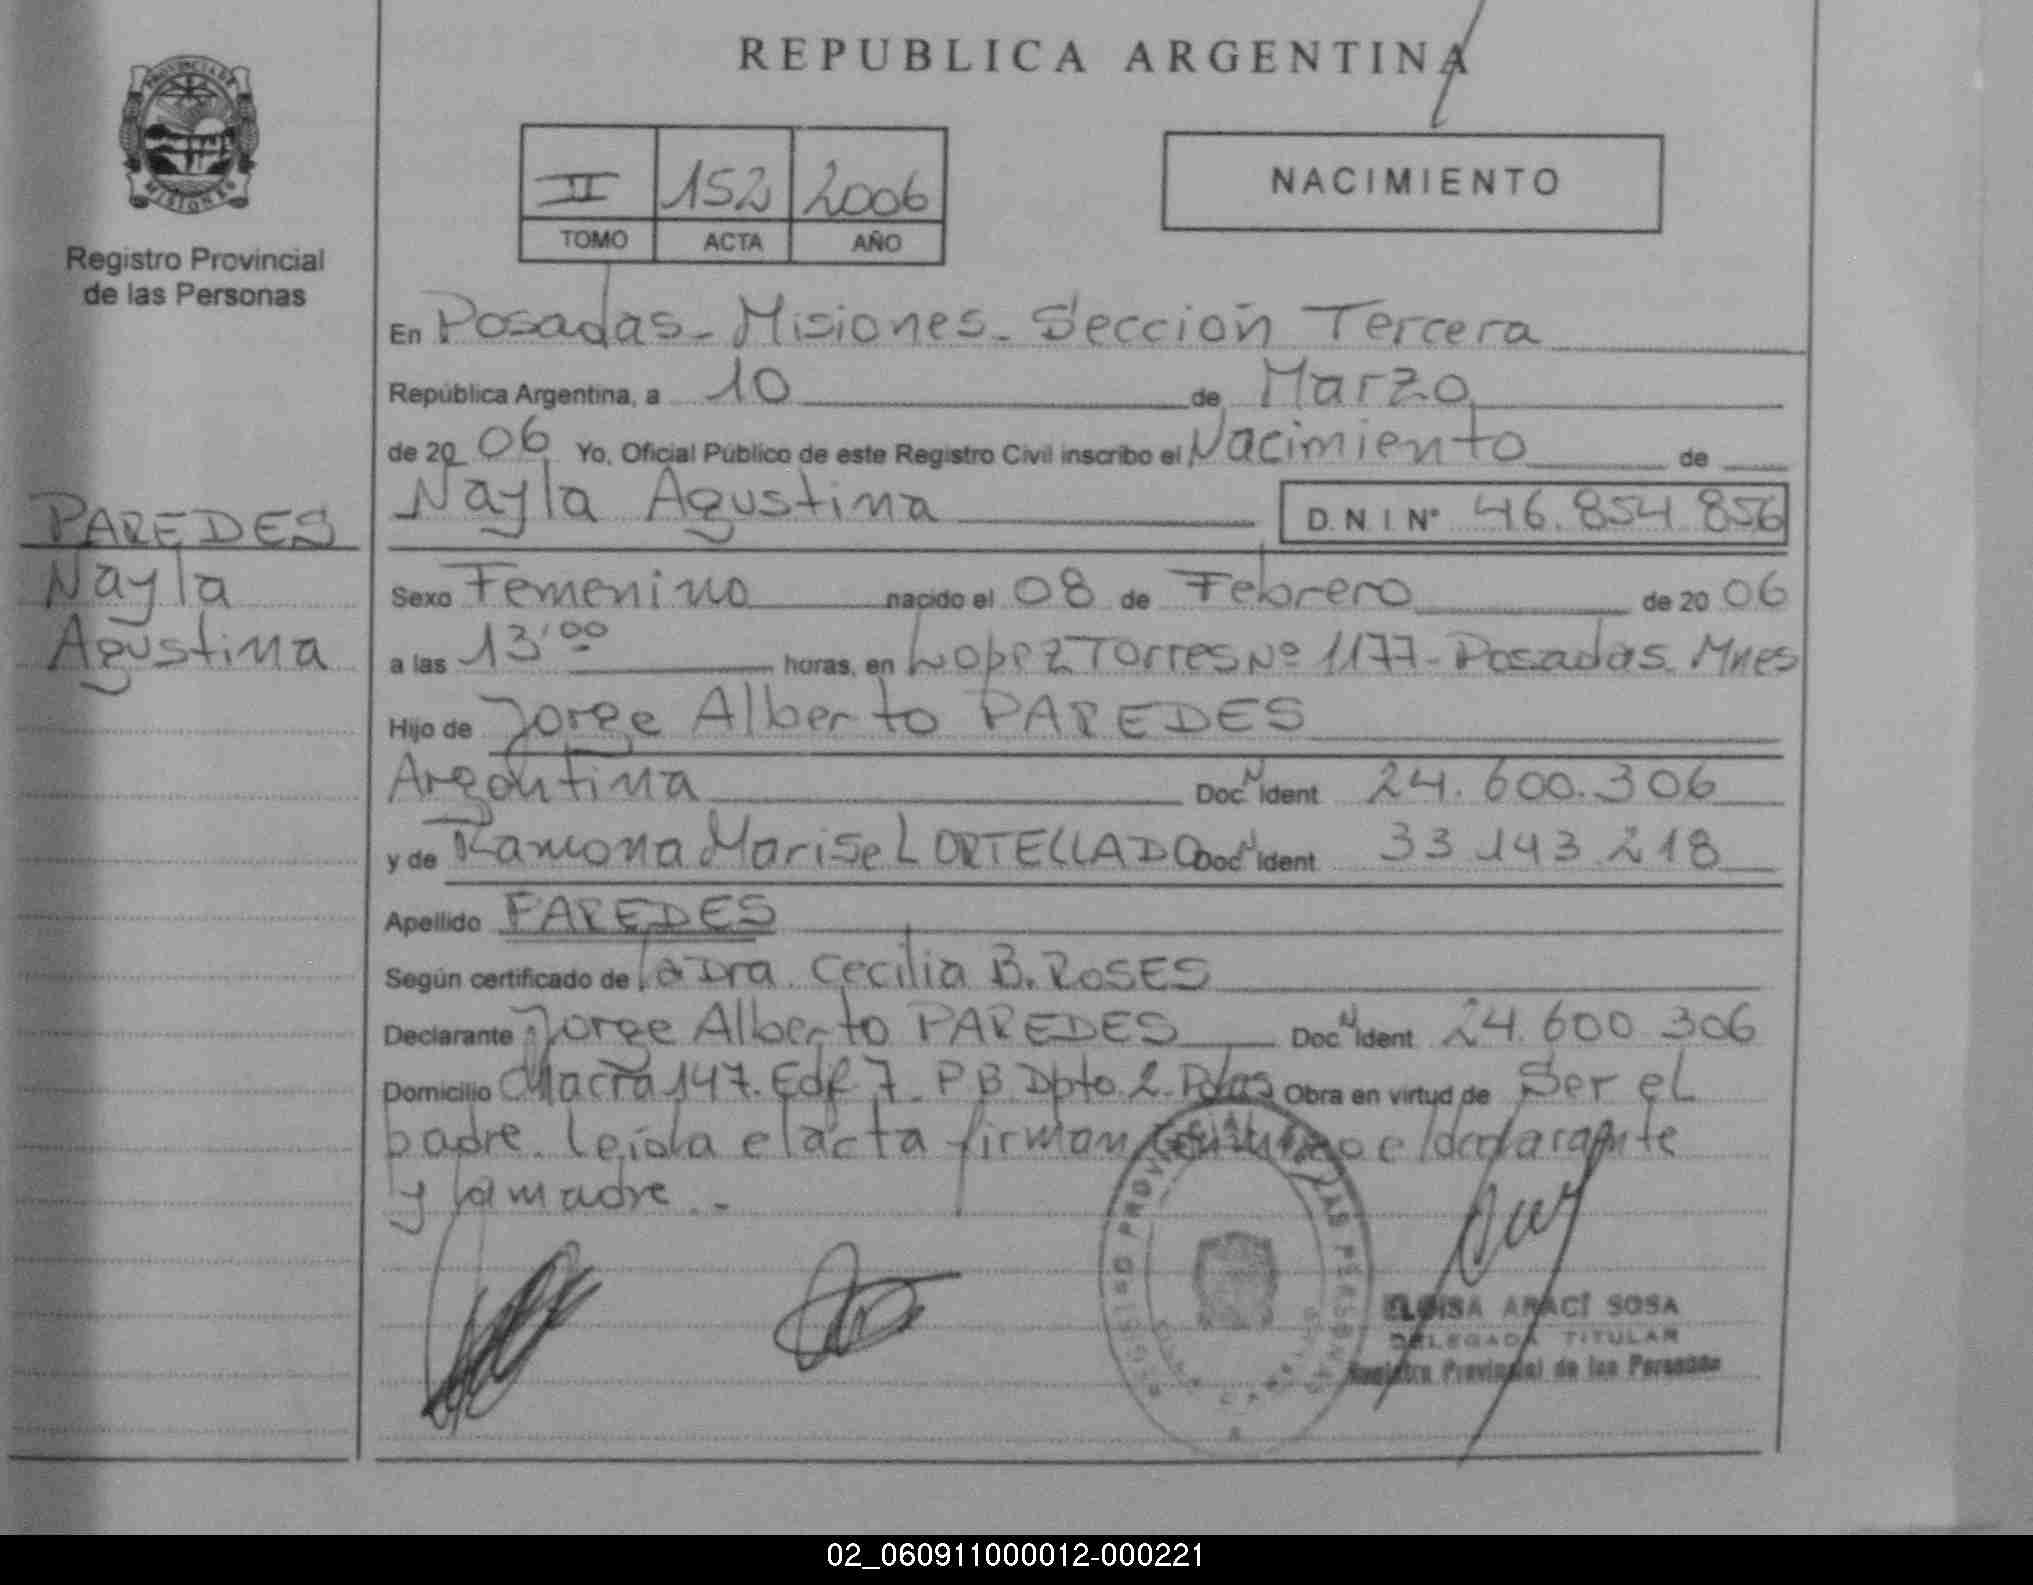 REPUBLICA ARGENTINA
PROVINCIA DE
MISIONES
Registro Provincial
de las Personas
II 152 2006
TOMO ACTA AÑO
NACIMIENTO
En Posadas - Misiones - Sección Tercera
República Argentina, a 10 de Marzo
de 2006 Yo, Oficial Público de este Registro Civil inscribo el Nacimiento de
Nayla Agustina D.N.I. Nº 46.854.856
PAREDES
Nayla
Agustina
Sexo Femenino nacido el 08 de Febrero de 2006
a las 13'00 horas, en Lopez Torres Nº 1177 - Posadas Mnes
Hijo de Jorge Alberto PAREDES
Argentina Doc N Ident 24.600.306
y de Ramona Marisel ORTELLADO Doc N Ident 33 143 218
Apellido PAREDES
Según certificado de la Dra. Cecilia B. ROSES
Declarante Jorge Alberto PAREDES Doc N Ident 24.600 306
Domicilio Chacra 147. Edf. 7 - P.B. Dpto. 2. Pdas Obra en virtud de Ser el
padre. leída el acta firman conmigo el declarante
y la madre. -
REGISTRO PROVINCIAL DE LAS PERSONAS
ELOISA ARACÍ SOSA
DELEGADA TITULAR
Registro Provincial de las Personas
02_060911000012-000221